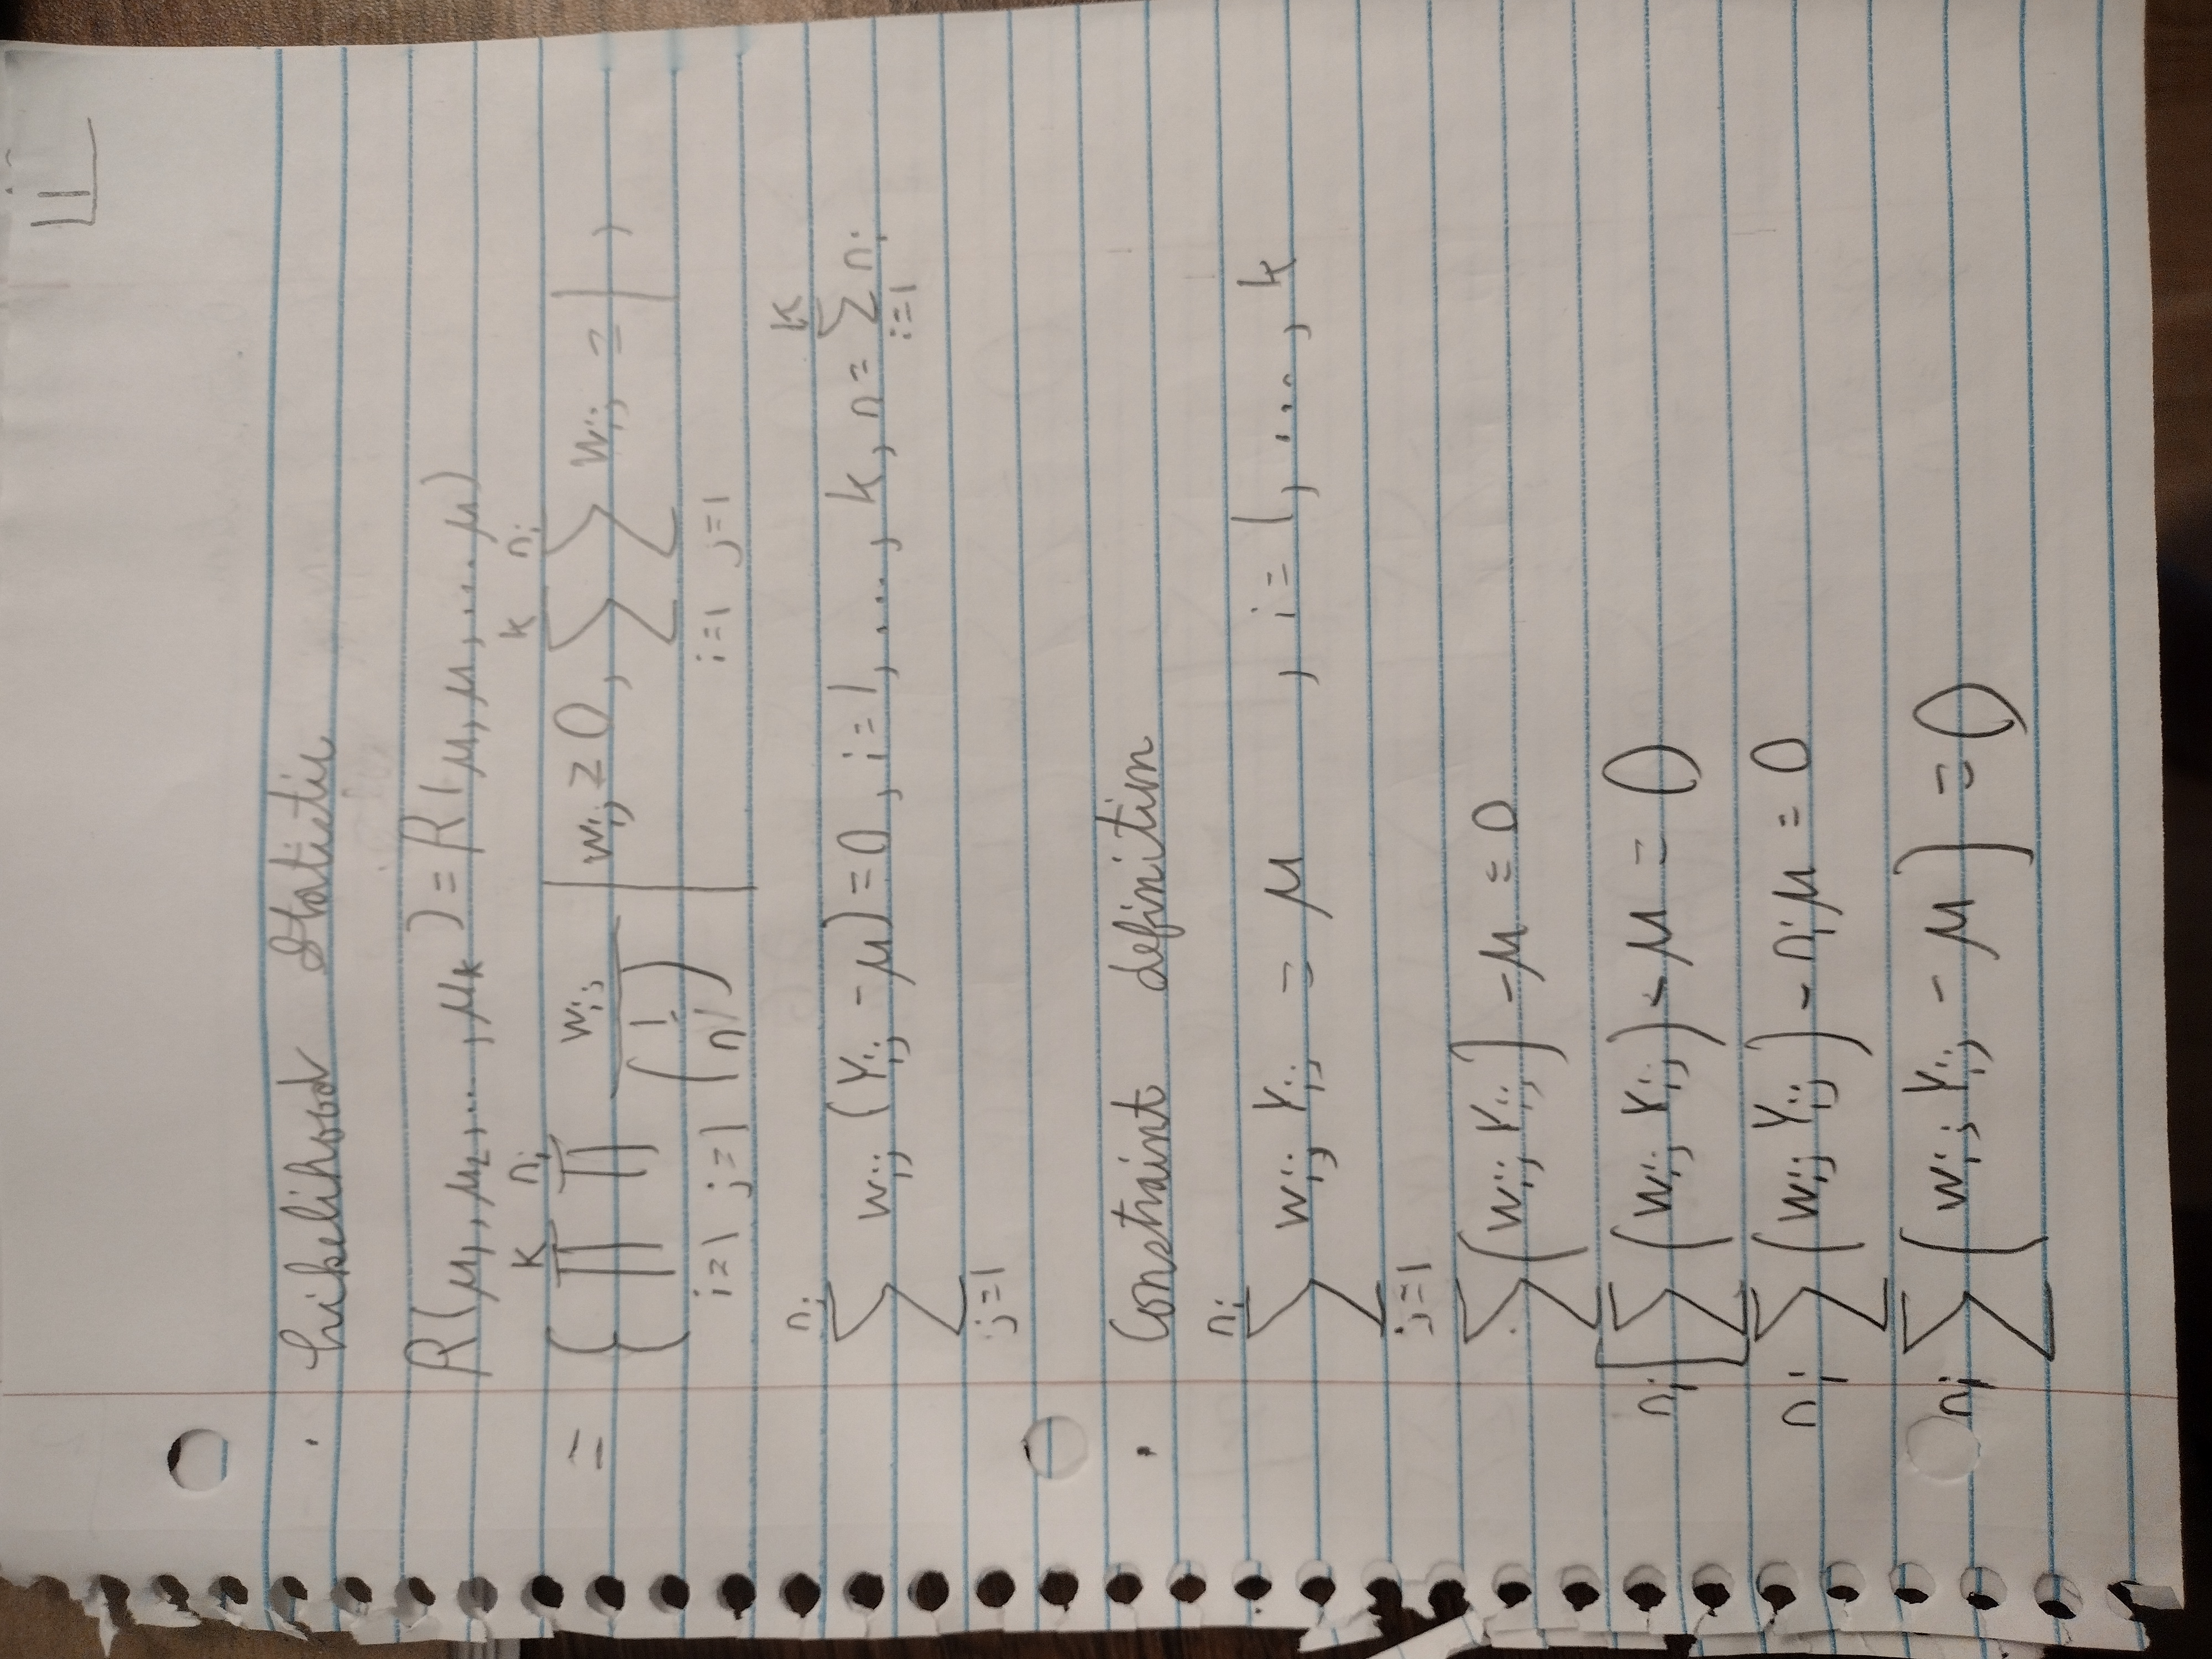 1
· Likelihood Statistic
R(μ₁, μ₂, ..., μₖ) = R(μ, μ, ... μ)
= { ∏_{i=1}^{k} ∏_{j=1}^{nᵢ} wᵢⱼ / (1/n) | wᵢⱼ ≥ 0, ∑_{i=1}^{k} ∑_{j=1}^{nᵢ} wᵢⱼ = 1,
∑_{j=1}^{nᵢ} wᵢⱼ (Yᵢⱼ - μ) = 0, i = 1, ..., k, n = ∑_{i=1}^{k} nᵢ
· Constraint definition
∑_{j=1}^{nᵢ} wᵢⱼ Yᵢⱼ = μ , i = 1, ..., k
∑ (wᵢⱼ Yᵢⱼ) - μ = 0
nᵢ [∑ (wᵢⱼ Yᵢⱼ) - μ = 0
nᵢ ∑ (wᵢⱼ Yᵢⱼ) - nᵢμ = 0
nᵢ ∑ (wᵢⱼ Yᵢⱼ - μ) = 0